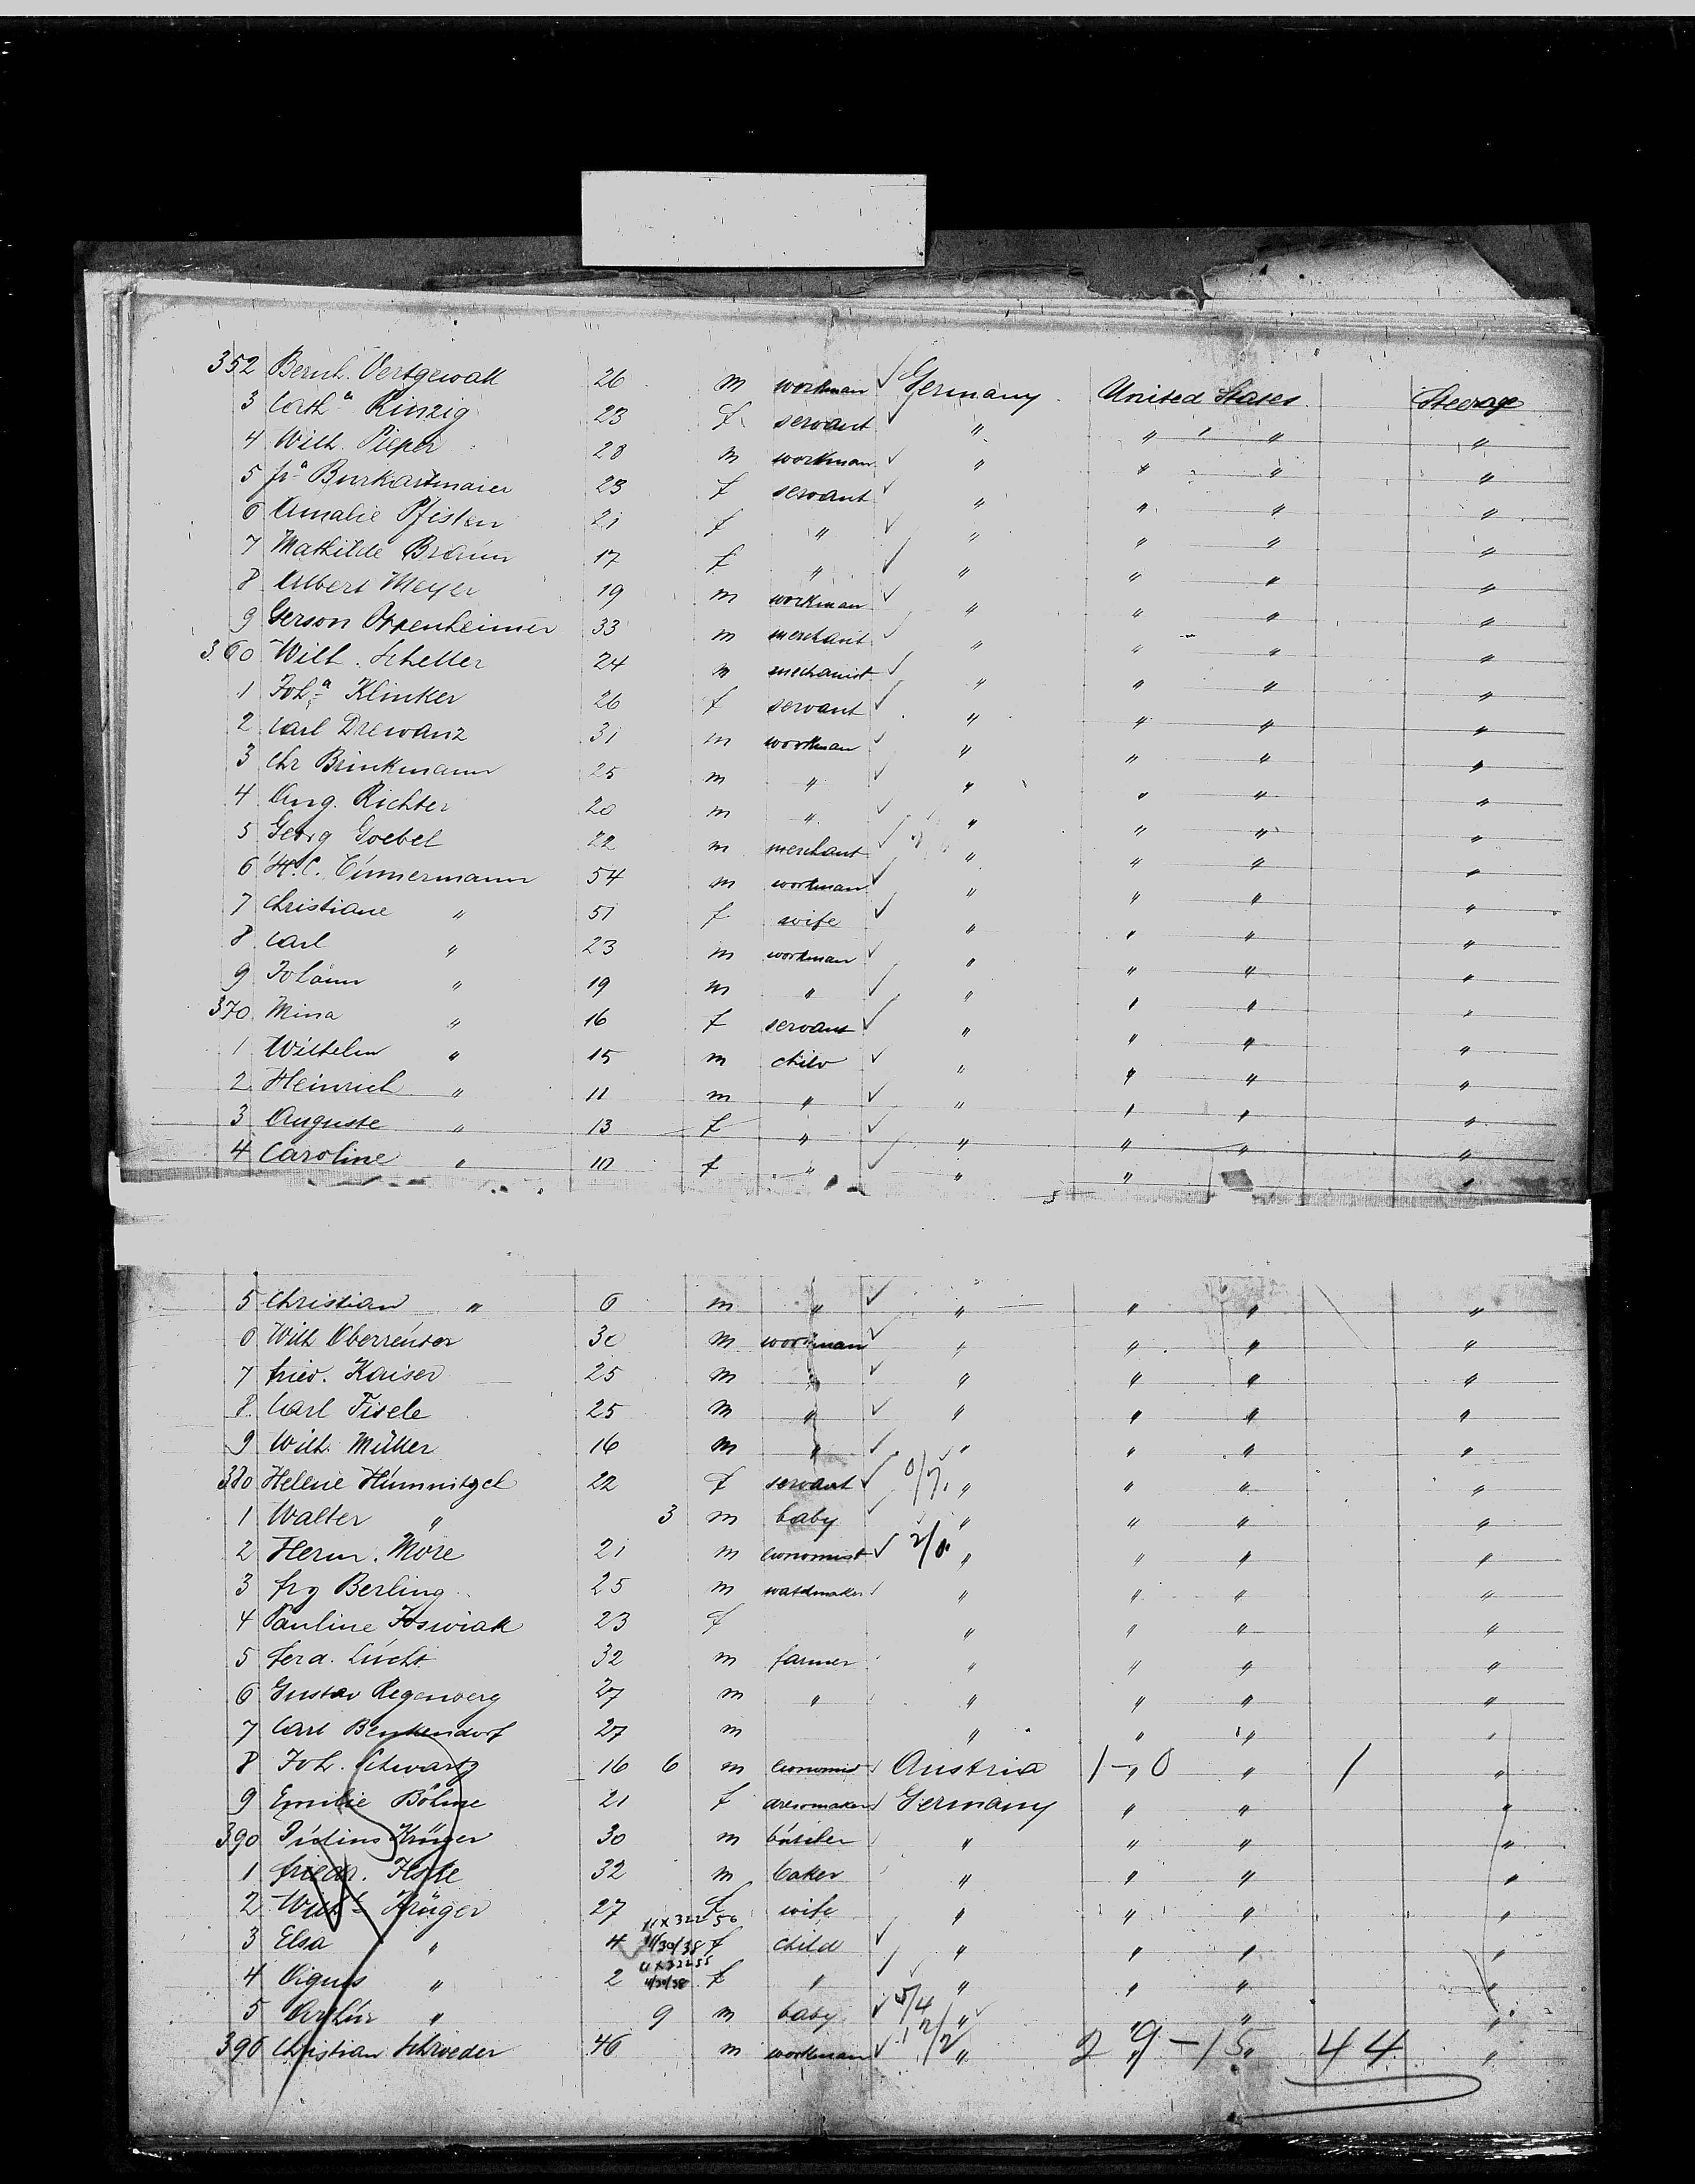 352 Bernh. Vertgewall 26 m workman ✓ Germany United States Steerage
3 Cath.a Kinzig 23 f servant ✓ " " " "
4 Wilh. Pieper 28 m workman ✓ " " " "
5 Fr.a Burkartmaier 23 f servant ✓ " " " "
6 Amalie Pfisten 21 f " ✓ " " " "
7 Mathilde Braun 17 f " ✓ " " " "
8 Albert Meyer 19 m workman ✓ " " " "
9 Gerson Oppenheimer 33 m merchant ✓ " " " "
360 Wilh. Scheller 24 m mechanist ✓ " " " "
1 Joh.a Klinker 26 f servant ✓ " " " "
2 Carl Drewanz 31 m workman ✓ " " " "
3 Chr Brinkmann 25 m " ✓ " " " "
4 Aug. Richter 20 m " ✓ " " " "
5 Georg Goebel 22 m merchant ✓ " " " "
6 H. C. Timmermann 54 m workman ✓ " " " "
7 Christiane " 51 f wife ✓ " " " "
8 Carl " 23 m workman ✓ " " " "
9 Johann " 19 m " ✓ " " " "
370 Mina " 16 f servant ✓ " " " "
1 Wilhelm " 15 m child ✓ " " " "
2 Heinrich " 11 m " ✓ " " " "
3 Auguste " 13 f " ✓ " " " "
4 Caroline " 10 f " ✓ " " "
5 Christian " 6 m " ✓ " " " "
6 Wilh Oberreuter 30 m workman ✓ " " " "
7 Fried. Kaiser 25 m " ✓ " " " "
8 Carl Fisele 25 m " ✓ " " " "
9 Wilh. Müller 16 m " ✓ " " " "
380 Helene 22 f servant ✓ " " " "
1 Walter " 3 m baby ✓ " " " "
2 Herm. More 21 m economist ✓ 2/0 " " " "
3 Frz Berling 25 m watchmaker " " " "
4 Pauline Joswiak 23 f " " " "
5 Ferd. Lucht 32 m farmer " " " "
6 Gustav Regenberg 27 m " " " " "
7 Carl Benkendorf 27 m " " " "
8 Joh. Schwartz 16 6 m economist Austria 1-0 " " 1 "
9 Emilie Böhme 21 f dressmaker Germany " " "
390 Krüger 30 m butcher " " " "
1 Friedr. 32 m baker " " " "
2 Krüger 27 f wife " " " "
3 Elsa " 4 11/30/38 f child ✓ " " " "
4 " 2 f " ✓ " " " "
5 Arthur " 9 m baby ✓ 5/4 " " " "
396 Christian Schroeder 46 m workman ✓ 12/2 " 29-15 44 "